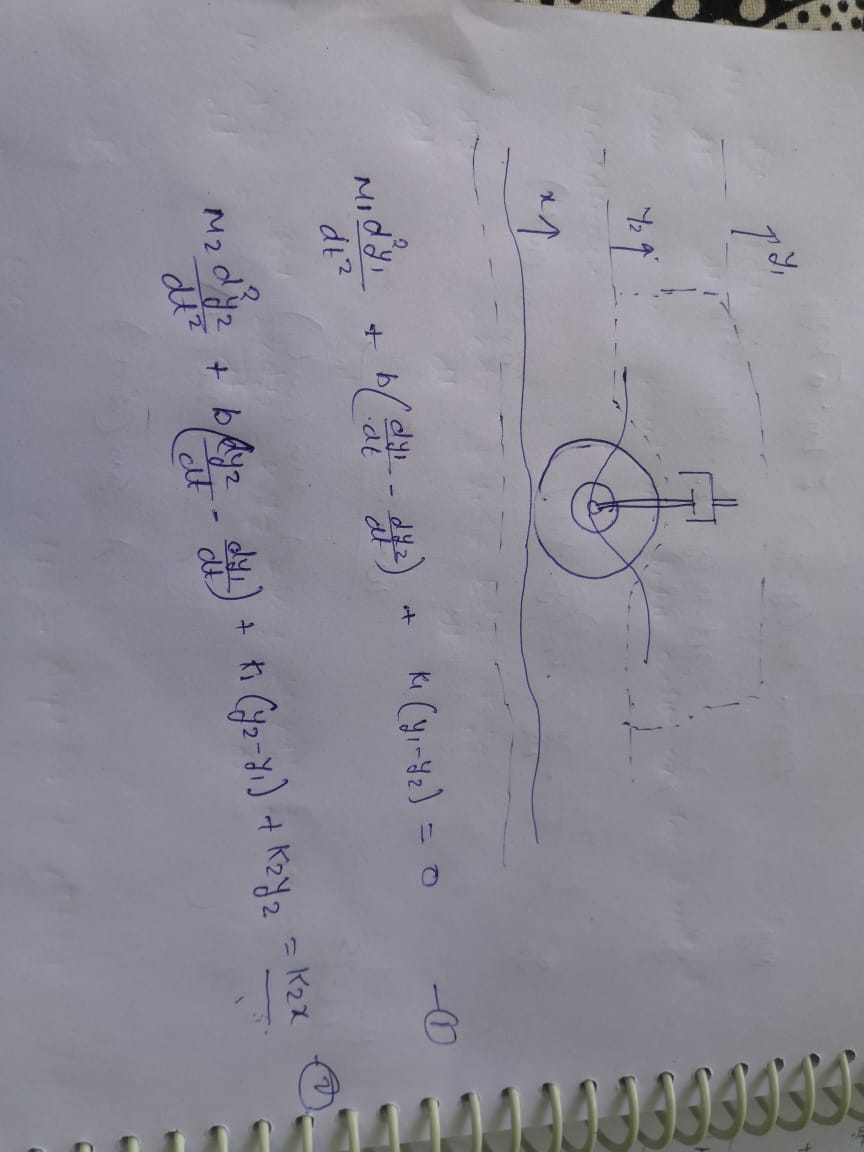 y₁ ↑
y₂ ↑
x ↑
M₁ d²y₁/dt² + b(dy₁/dt - dy₂/dt) + K₁(y₁-y₂) = 0 -①
M₂ d²y₂/dt² + b(dy₂/dt - dy₁/dt) + K₁(y₂-y₁) + K₂y₂ = K₂x -②